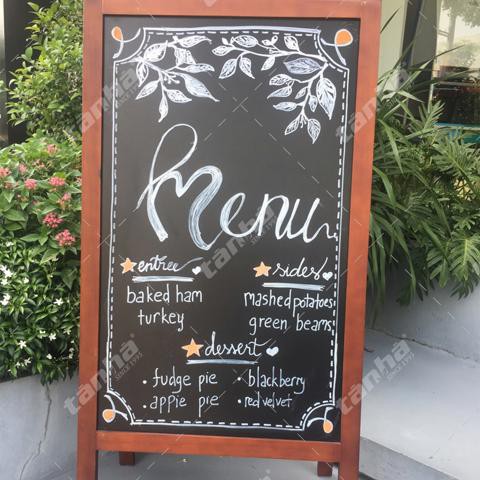 Menu
entree
baked ham
turkey
sides
mashed potatoes
green beans
dessert
• fudge pie
• appie pie
• blackberry
• red velvet
tanhà
SINCE 1995